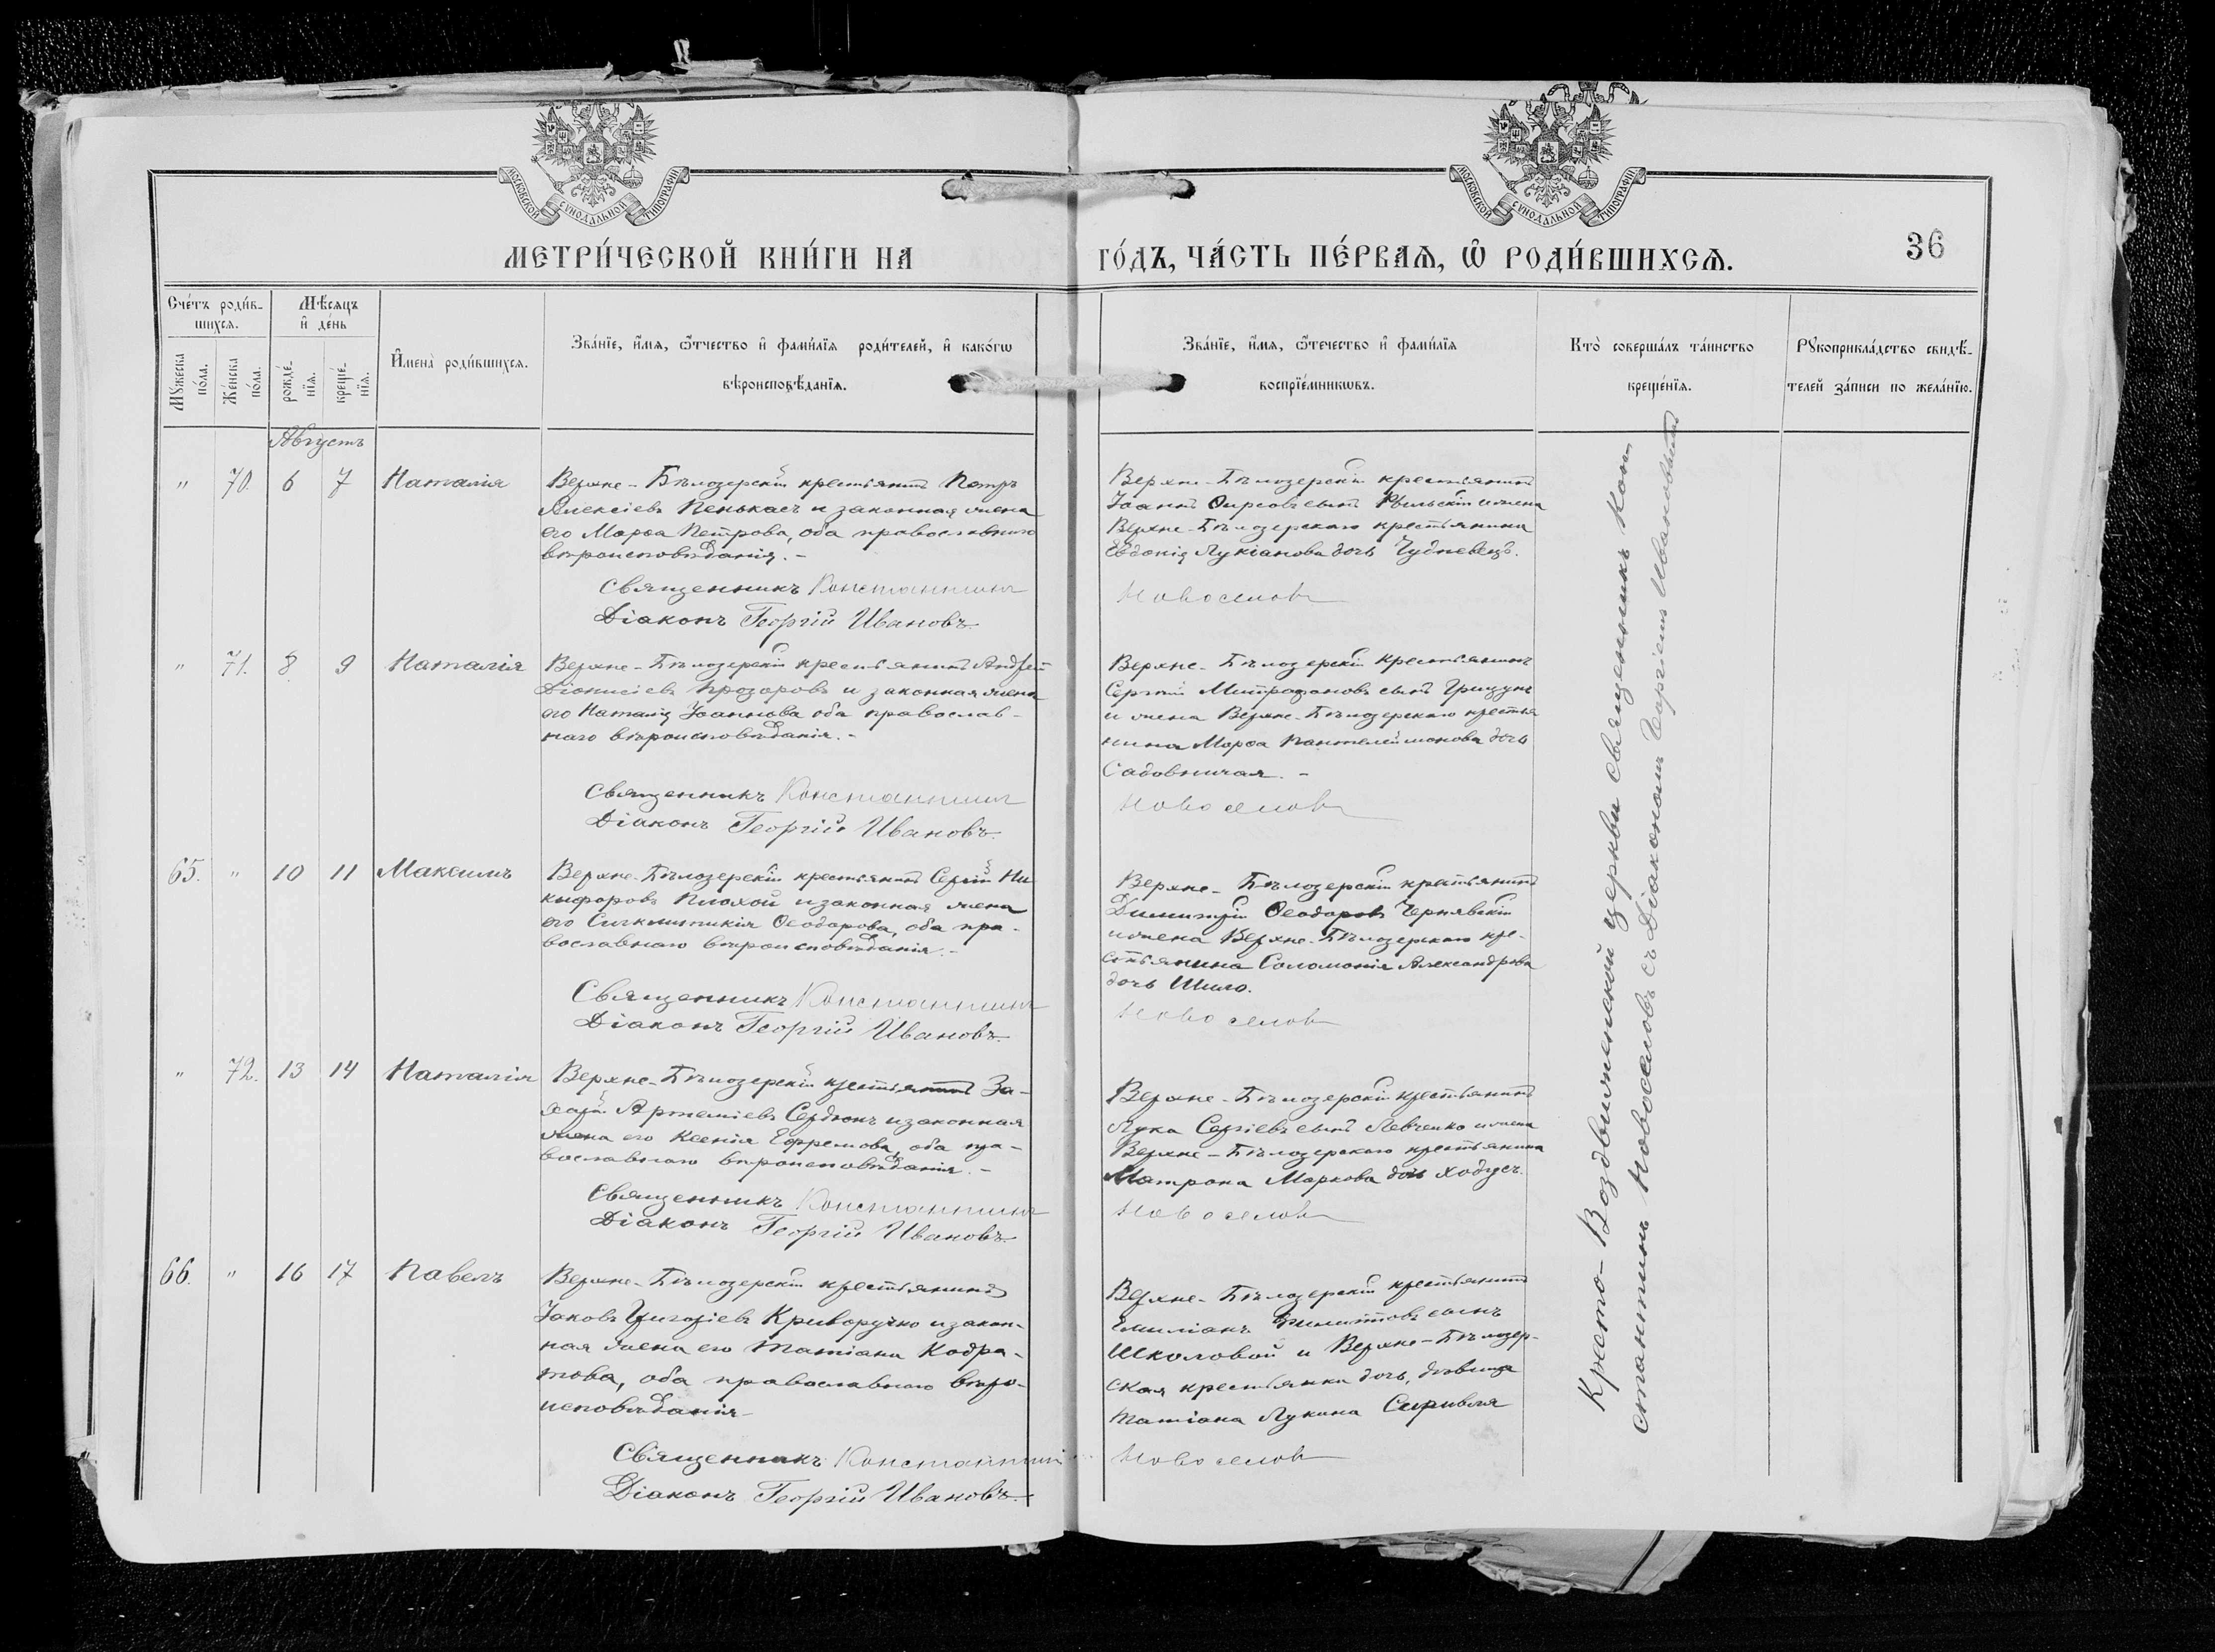 МОСКОВСКОЙ СѴНОДАЛЬНОЙ ТИПОГРАФІИ
МОСКОВСКОЙ СѴНОДАЛЬНОЙ ТИПОГРАФІИ
МЕТРИ́ЧЕСКОЙ КНИ́ГИ НА ГО́ДЪ, ЧА́СТЬ ПЕ́РВАѦ, Ѡ҆ РОДИ́ВШИХСѦ.
36
Сче́тъ роди́в-
шихсѧ.
Мꙋ́жеска по́ла.
Же́нска по́ла.
Мѣ́сяцъ
и҆ де́нь
рожде́-
нїѧ.
креще́-
нїѧ.
И҆мена̀ роди́вшихсѧ.
Зва́нїе, и҆́мѧ, ѻ҆́тчество и҆ фами́лїѧ роди́телей, и҆ како́гѡ
вѣроисповѣ́данїѧ.
Зва́нїе, и҆́мѧ, ѻ҆́течество и҆ фами́лїѧ
воспрїе́мникѡвъ.
Кто̀ соверша́лъ та́инство
креще́нїѧ.
Рꙋкоприкла́дство свидѣ́-
телей за́писи по жела́нїю.
Августъ
" 70. 6 7 Наталія
Верхне-Бѣлозерскій крестьянинъ Петръ
Алексіевъ Пенькасъ и законная жена
его Марѳа Петрова, оба православнаго
вѣроисповѣданія.-
Священникъ Константинъ
Діаконъ Георгій Ивановъ.
Верхне-Бѣлозерскій крестьянинъ
Іоаннъ сынъ Рыльскій и жена
Верхне-Бѣлозерскаго крестьянина
Евдокія Лукіанова дочь Чудневецъ.
Новоселовъ
" 71. 8 9 Наталія
Верхне-Бѣлозерскій крестьянинъ Андрей
Діонисіевъ Прозоровъ и законная жена
его Наталія Іоаннова оба православ-
наго вѣроисповѣданія.-
Священникъ Константинъ
Діаконъ Георгій Ивановъ.
Верхне-Бѣлозерскій крестьянинъ
Сергій Митрофановъ сынъ Грицунъ
и жена Верхне-Бѣлозерскаго крестья
нина Марѳа Пантелеимонова дочь
Садовничая.-
Новоселовъ
65. " 10 11 Максимъ
Верхне-Бѣлозерскій крестьянинъ Сергій Ни-
кифоровъ Плохой и законная жена
его Синклитикія Ѳеодорова, оба пра-
вославнаго вѣроисповѣданія.-
Священникъ Константинъ
Діаконъ Георгій Ивановъ.
Верхне-Бѣлозерскій крестьянинъ
Димитрій Ѳеодоровъ Чернявскій
и жена Верхне-Бѣлозерскаго кре-
стьянина Соломонія Александрова
дочь Шило.
Новоселовъ
" 72. 13 14 Наталія
Верхне-Бѣлозерскій крестьянинъ За-
харій Артеміевъ Сердюкъ и законная
жена его Ксенія Ефремова, оба пра-
вославнаго вѣроисповѣданія.-
Священникъ Константинъ
Діаконъ Георгій Ивановъ.
Верхне-Бѣлозерскій крестьянинъ
Лука Сергіевъ сынъ Левченко и жена
Верхне-Бѣлозерскаго крестьянина
Матрона Маркова дочь Ходусъ.
Новоселовъ
66. " 16 17 Павелъ
Верхне-Бѣлозерскій крестьянинъ
Іаковъ Григоріевъ Криворучко и закон-
ная жена его Татіана Кодра-
това, оба православнаго вѣро-
исповѣданія
Священникъ Константинъ
Діаконъ Георгій Ивановъ.
Верхне-Бѣлозерскій крестьянинъ
Емиліанъ сынъ
Школовой и Верхне-Бѣлозер-
ская крестьянка дочь, дѣвица
Татіана Лукина
Новоселовъ
Кресто-Воздвиженской церкви Священникъ Кон-
стантинъ Новоселовъ съ Діакономъ Георгіемъ Ивановымъ